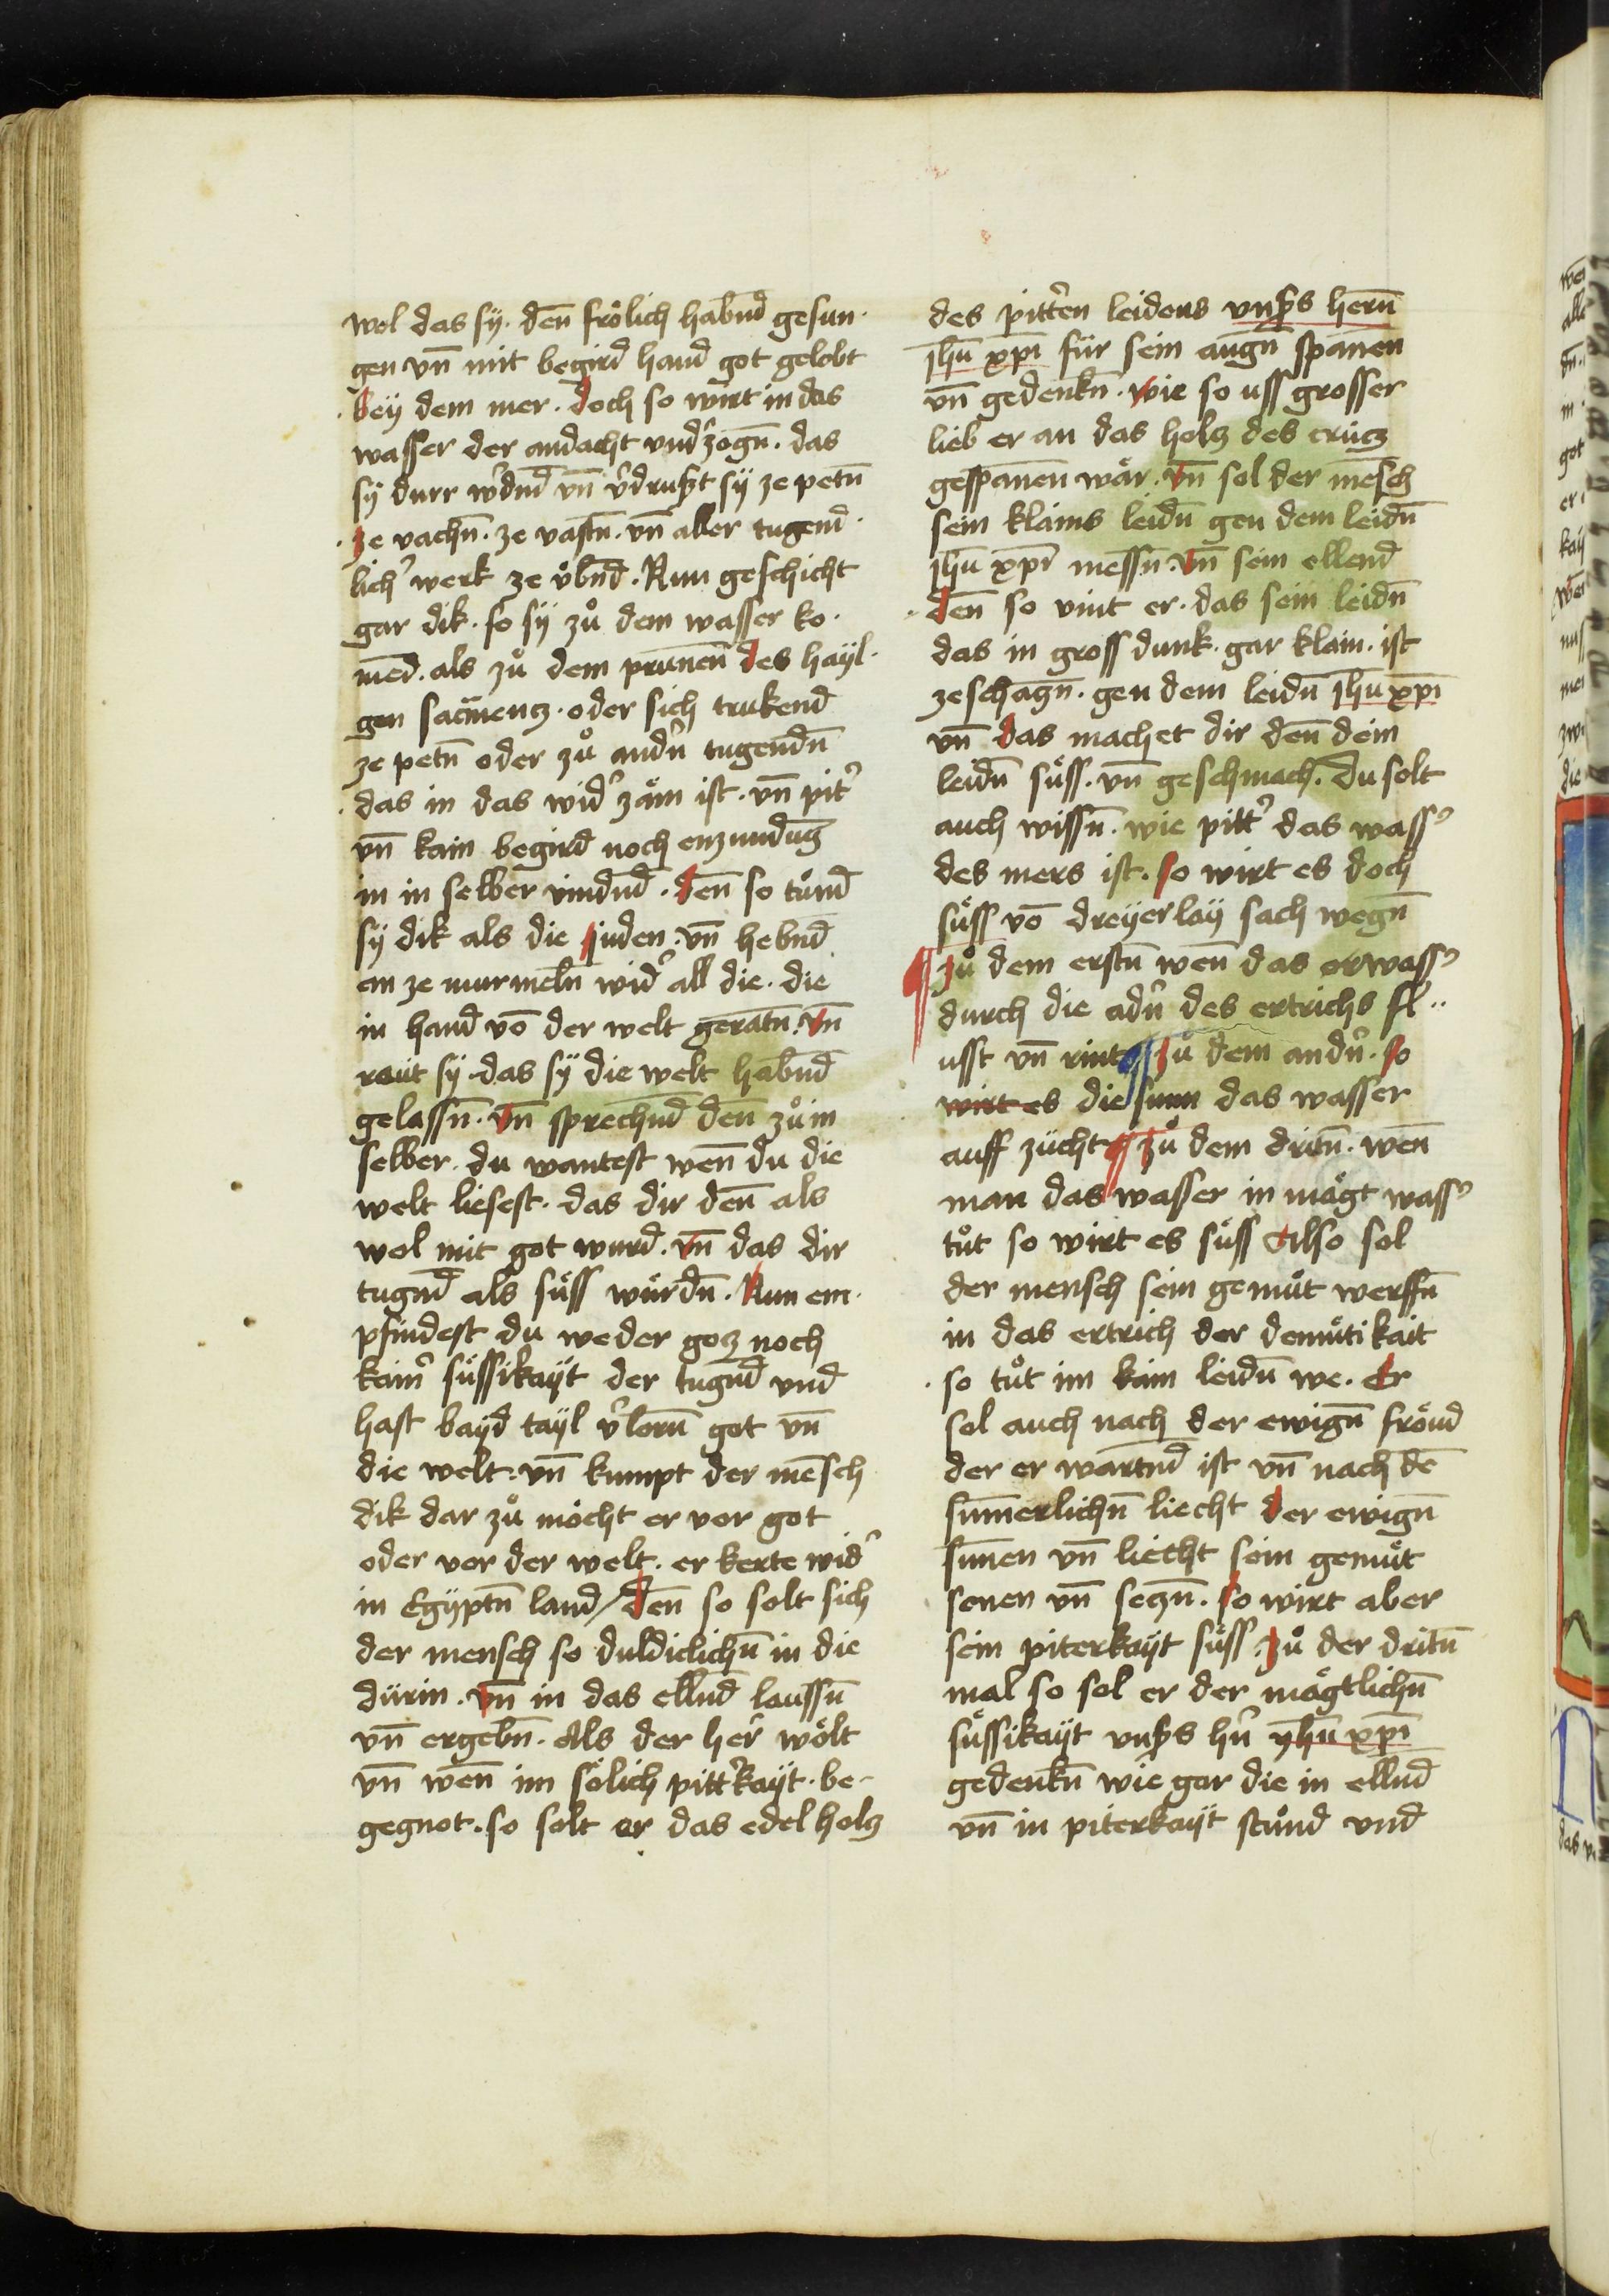 wol das sÿ · den̄ frölich habn̄d gesun·
gen vn̄ mit begird hand got gelobt
· beÿ dem mer · doch so wirt in das
wasser der andacht vnd̾zogn̄ · das
sÿ durr w̾dn̄d vn̄ v̾drust sÿ ze petn̄
· ze vachn̄ · ze vastn̄ · vn̄ aller tugend·
lich̾ werk ze v̈bn̄d · Nun geschicht
gar dik · so sÿ zů dem wasser ko·
men̄d · als zů dem prunen̄ des haÿl·
gen sac̄mentz · oder sich trukend
ze petn̄ oder zů andn̾ tugendn̄
· das in das wid̾ zäm ist · vn̄ pit̾
vn̄ kain begird noch enzundūg
in in selber vindn̄d · den̄ so tůnd
sÿ dik als die juden · vn̄ hebn̄d
an ze murmeln̄ wid̾ all die · die
in hand vō der welt geratn̄ · vn̄
raut sÿ · das sÿ die welt habn̄d
gelassn̄ · vn̄ sprechn̄d den̄ zů in
selber · du wantest wen̄ du die
welt liesest · das dir den̄ als
wol mit got wurd · vn̄ das dir
tugn̄d als süss würdn̄ · Nun em·
pfindest du weder gotz noch
kain̾ süssikaÿt der tugn̄d vnd
hast bayd tayl v̾lorn̄ got vn̄
die welt · vn̄ kumpt der mēsch
dik dar zů möcht er vor got
oder vor der welt · er kerte wid̾
in Egÿptn̄ land / den̄ so solt sich
der mensch so duldiclichn̄ in die
dürin · vn̄ in das elln̄d laussn̄
vn̄ ergebn̄ · Als der her̾ wölt
vn̄ wen̄ im sölich pitt̾kaÿt · be-
gegnot · so solt er das edel holtz
des pitt̾en leidens vnsers hern̄
jhū xp̄i für sein augn̄ spanen
vn̄ gedenkn̄ · wie so uss grosser
lieb er an das holtz des crütz
gespanen̄ wär · vn̄ sol der mēsch
sein klains leidn̄ gen dem leidn̄
jhū xp̄i messn̄ · vn̄ sein ellend
· den̄ so vint er · das sein leidn̄
das in gross dunk · gar klain · ist
ze schagn̄ · gen dem leidn̄ jhū xp̄i
vn̄ das machet dir den̄ dein
leidn̄ süss · vn̄ geschmach · Du solt
auch wissn̄ · wie pitt̾ das wass̾
des mers ist · so wirt es doch
süss vō dreÿerlaÿ sach wegn̄
¶ zů dem erstn̄ wen̄ das er wass̾
durch die adn̾ des ertrichs fl··
usst vn̄ rint ¶ zů dem andn̾ · so
wirt es die sunn das wasser
auff zücht ¶ zů dem dritn̄ · wen̄
man das wasser in mägt wass̾
tůt so wirt es süss Also sol
der mensch sein gemüt werffn̄
in das ertrich der demütikait
· so tůt im kain leidn̄ we · Er
sol auch nach der ewign̄ fröud
der er wartn̄d ist vn̄ nach dē
sum̄erlichn̄ liecht der ewign̄
sunen vn̄ liecht sein gemüt
senen vn̄ setzn̄ · so wirt aber
sein piterkaÿt süss · zů der dritn̄
mal so sol er der mägtlichn̄
süssikaÿt vnsers hn̾ yhū xp̄i
gedenkn̄ wie gar die in elln̄d
vn̄ in piterkaÿt stůnd vnd